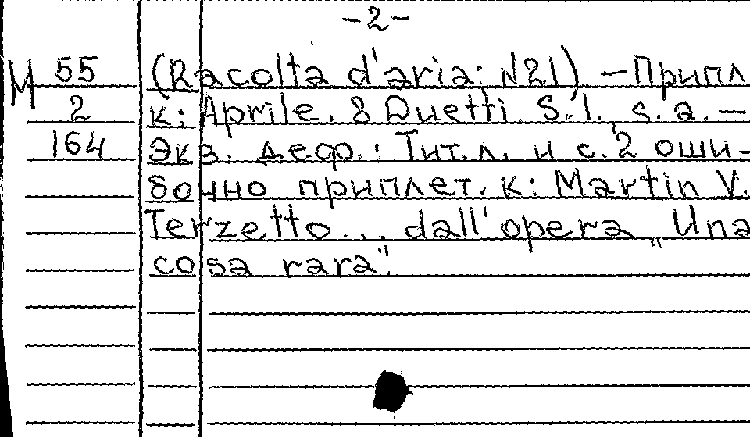 -2-
М 55 (Racolta d'aria: N21) -Припл
2 к: Aprile. 8 Duetti S.l., s.a.-
164 Экз. деф.: Тит.л. и с.2 оши-
бочно приплет. к: Martin V.
Terzetto... dall'opera „Una
cosa rara".